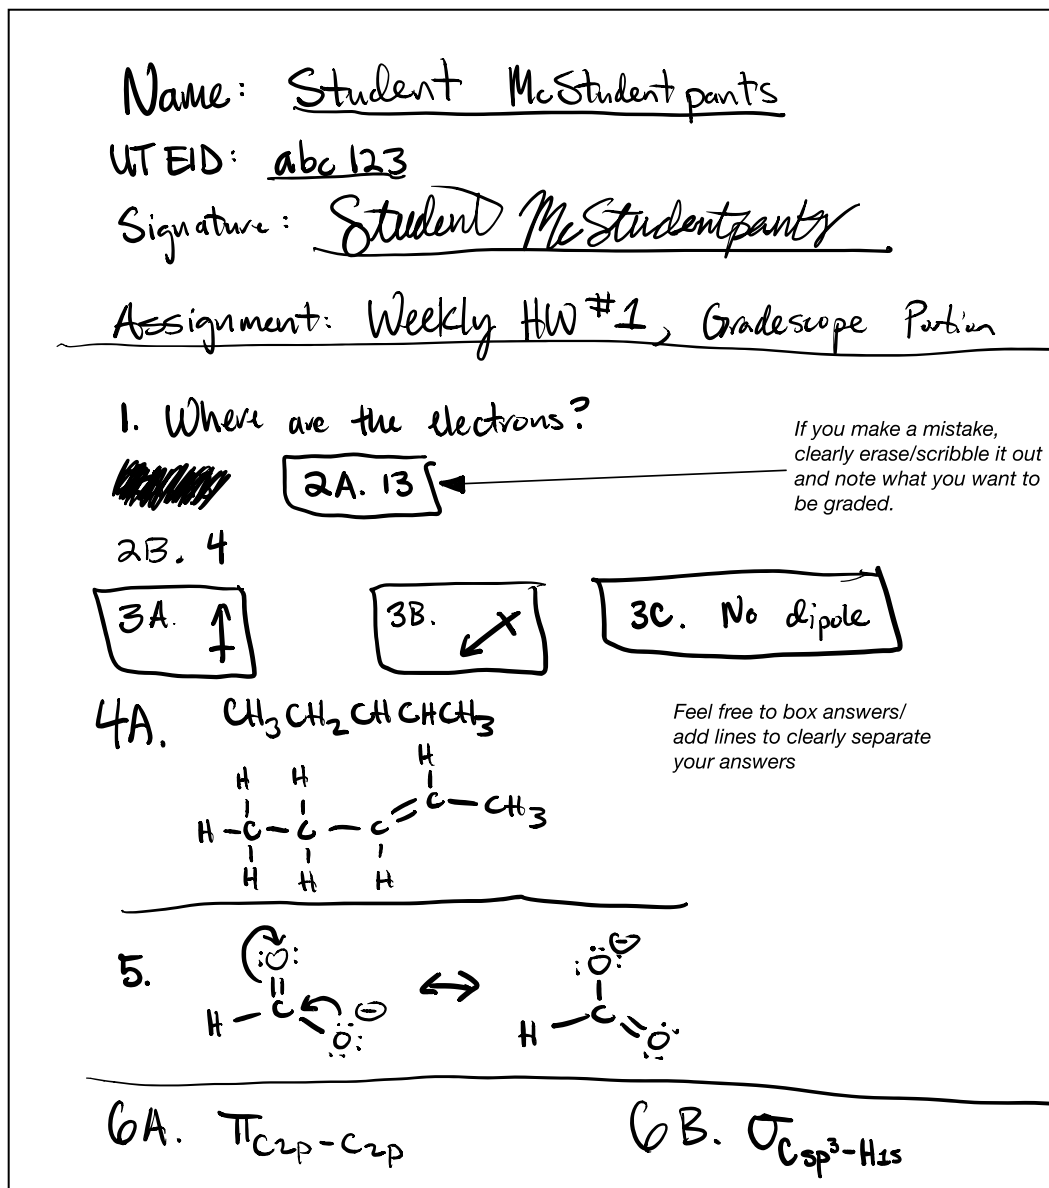 Name: Student McStudentpants
UT EID: abc123
Signature: Student McStudentpants
Assignment: Weekly HW #1, Gradescope Portion
1. Where are the electrons?
If you make a mistake,
clearly erase/scribble it out
and note what you want to
be graded.
2A. 13
2B. 4
3A.
3B.
3C. No dipole
4A. CH₃CH₂CHCHCH₃
Feel free to box answers/
add lines to clearly separate
your answers
H H H
H C C C C CH₃
H H H
5.
O O ⊖
H C O ⊖ H C O
6A. π C2p-C2p 6B. σ Csp³-H1s